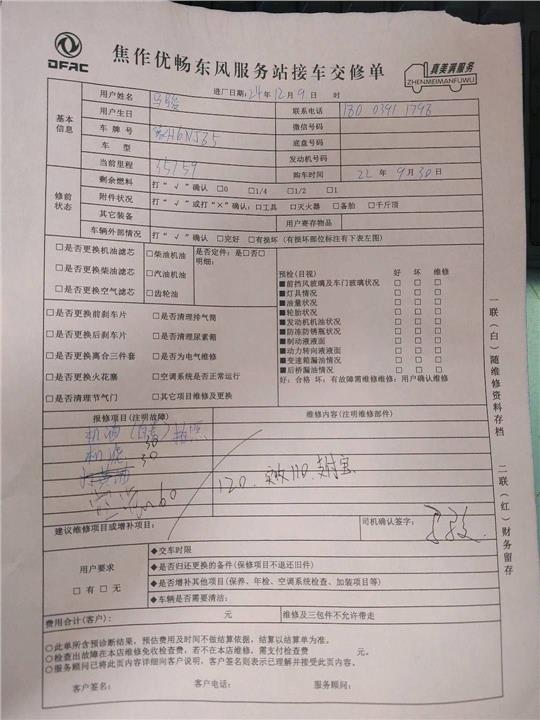 DFAC
焦作优畅东风服务站接车交修单
真美满服务
ZHENMEIMANFUWU
进厂日期:24年12月9日 时
基本信息
用户姓名
联系电话 180 0391 1798
用户生日
微信号码
车 牌 号
底盘号码
车 型
发动机号码
当前里程 35759
购车时间 22 年 9月30日
修前状态
剩余燃料 打“√”确认 □0 □1/4 □1/2 □1
附件状况 打“√”或打“×”确认:□工具 □灭火器 □备胎 □千斤顶
其它装备
用户寄存物品
车辆外部情况 打“√”确认 □完好 □有损坏(有损坏部位标注有下表左图)
□是否更换机油滤芯 □柴油机油 是否定件:是□否□
明细:
□是否更换柴油滤芯 □汽油机油
□是否更换空气滤芯 □齿轮油
□是否更换前刹车片 □是否清理排气筒
□是否更换后刹车片 □是否清理尿素箱
□是否更换离合三件套 □是否为电气维修
□是否更换火花塞 □空调系统是否正常运行
□是否清理节气门 □其它项目维修及更换
预检(目视) 好 坏 维修
■前挡风玻璃及车门玻璃状况 □ □ □
■灯具情况 □ □ □
■油量状况 □ □ □
■轮胎状况 □ □ □
■发动机机油状况 □ □ □
■防冻防锈瓶状况 □ □ □
■制动液液面 □ □ □
■动力转向液液面 □ □ □
■变速箱漏油情况 □ □ □
■后桥漏油情况 □ □ □
好:合格 坏:有故障需维修维修:用户确认维修
报修项目(注明故障)
维修内容(注明维修部件)
机油
机滤 30
60
120. 实收110. 支付宝
建议维修项目或增补项目:
司机确认签字:
用户要求
□有 □无
◆交车时限
◆是否归还更换的备件(保修项目不退还旧件)
◆是否增补其他项目(保养、年检、空调系统检查、加装项目等)
◆车辆是否需要清洁:
费用合计(客户): 元
维修及三包件不允许带走
○此单所含预诊断结果,预估费用及时间不做结算依据,结算以结算单为准。
○检查出故障在本店维修免收检查费,若不在本店维修,需支付检查费 元。
○服务顾问已将此页内容详细向客户说明,客户签名则表示已理解并接受此页内容。
客户签名: 客户电话: 服务顾问:
一联(白)随维修资料存档 二联(红)财务留存